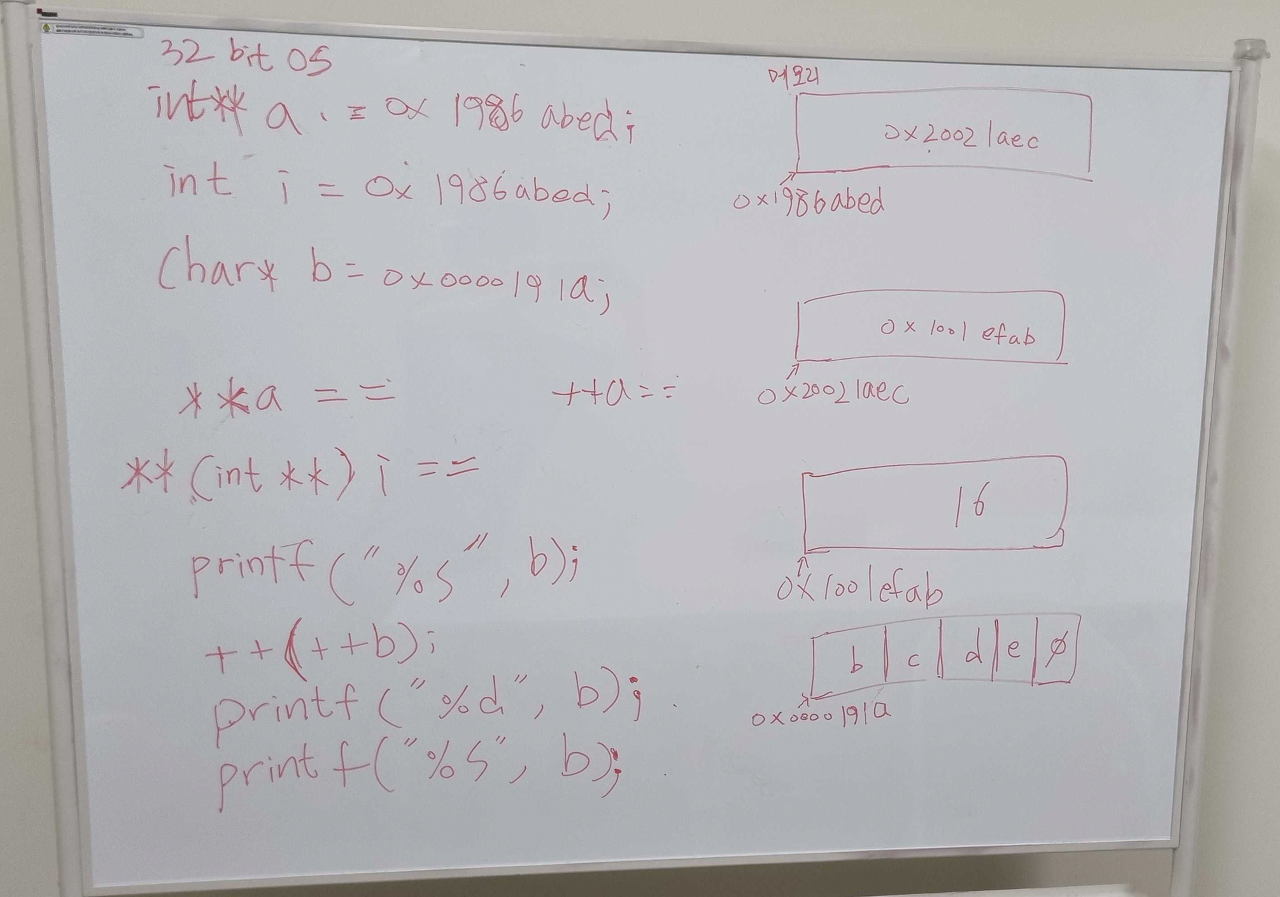 32 bit OS
int** a . = 0x 1986 abed;
int i = 0x 1986abed;
Char* b = 0x0000191a;
**a == ++a ==
**(int **) i ==
printf ("%s", b);
++(++b);
printf ("%d", b);
printf ("%s", b);
0x20021aec
0x1986abed
0x1001efab
0x20021aec
16
0x1001efab
b c d e ∅
0x0000191a